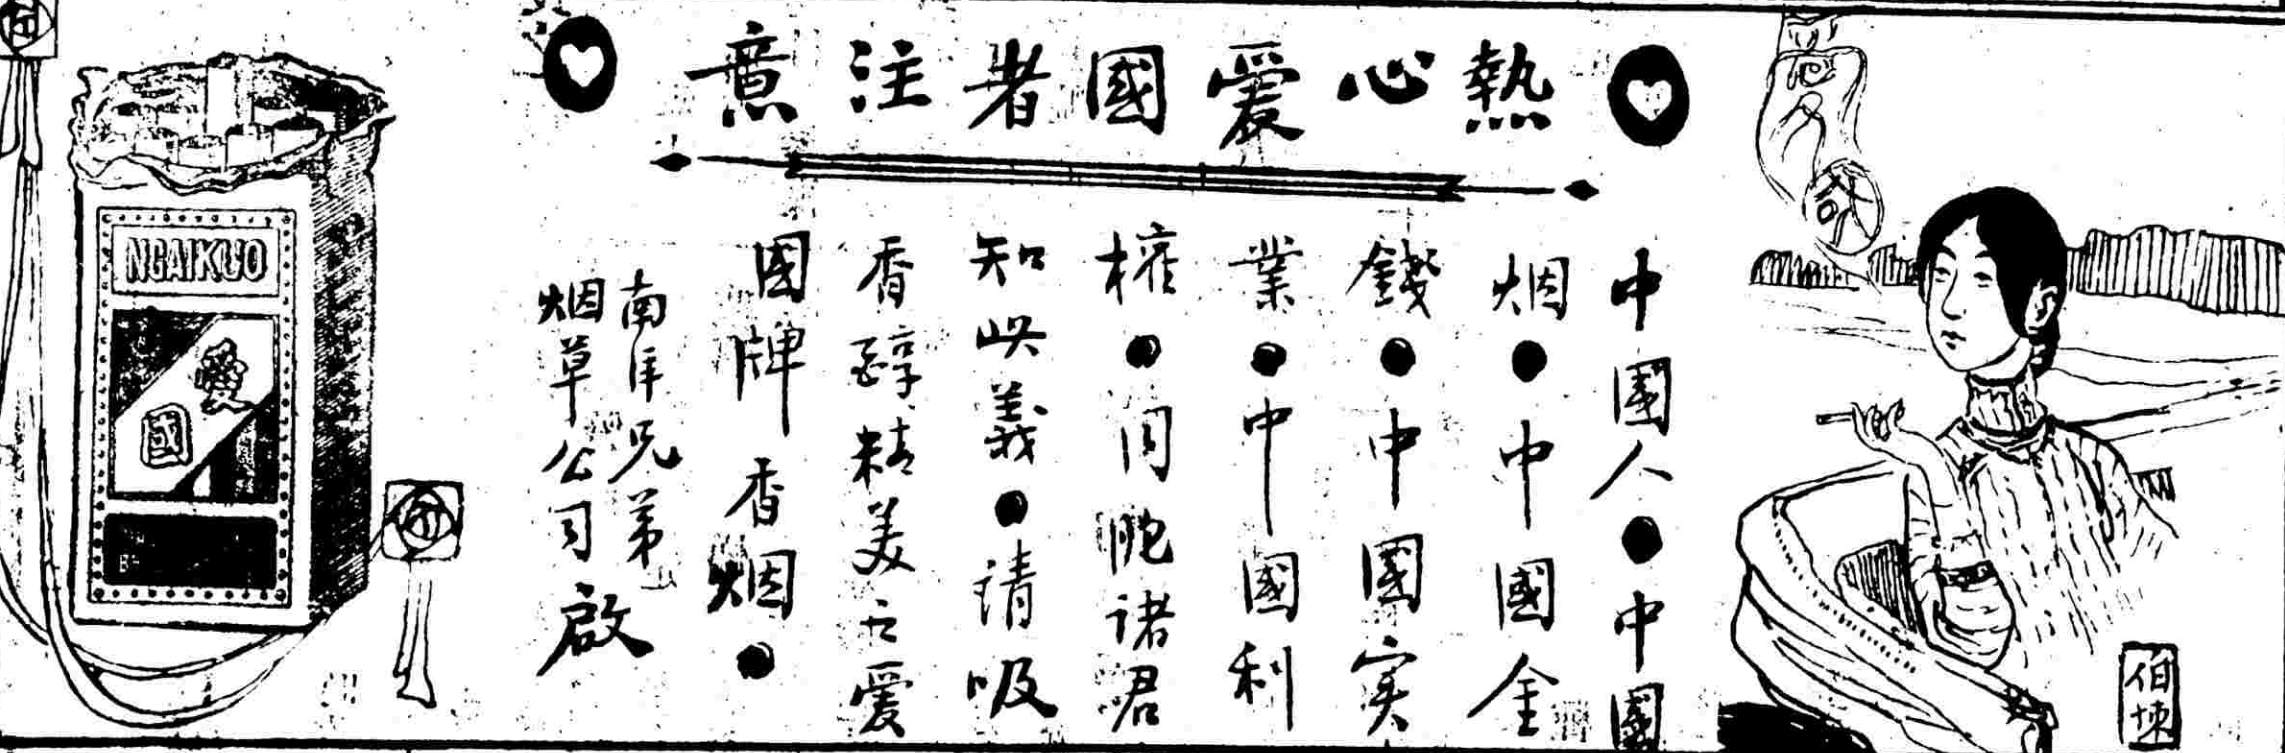 熱心愛國者注意
中國人●中國
烟●中國金
錢●中國实
業●中國利
權●同胞诸君
知此義●请吸
香醇精美之愛
國牌香烟●
南洋兄弟
烟草公司啟
NGAIKUO
愛國
伯